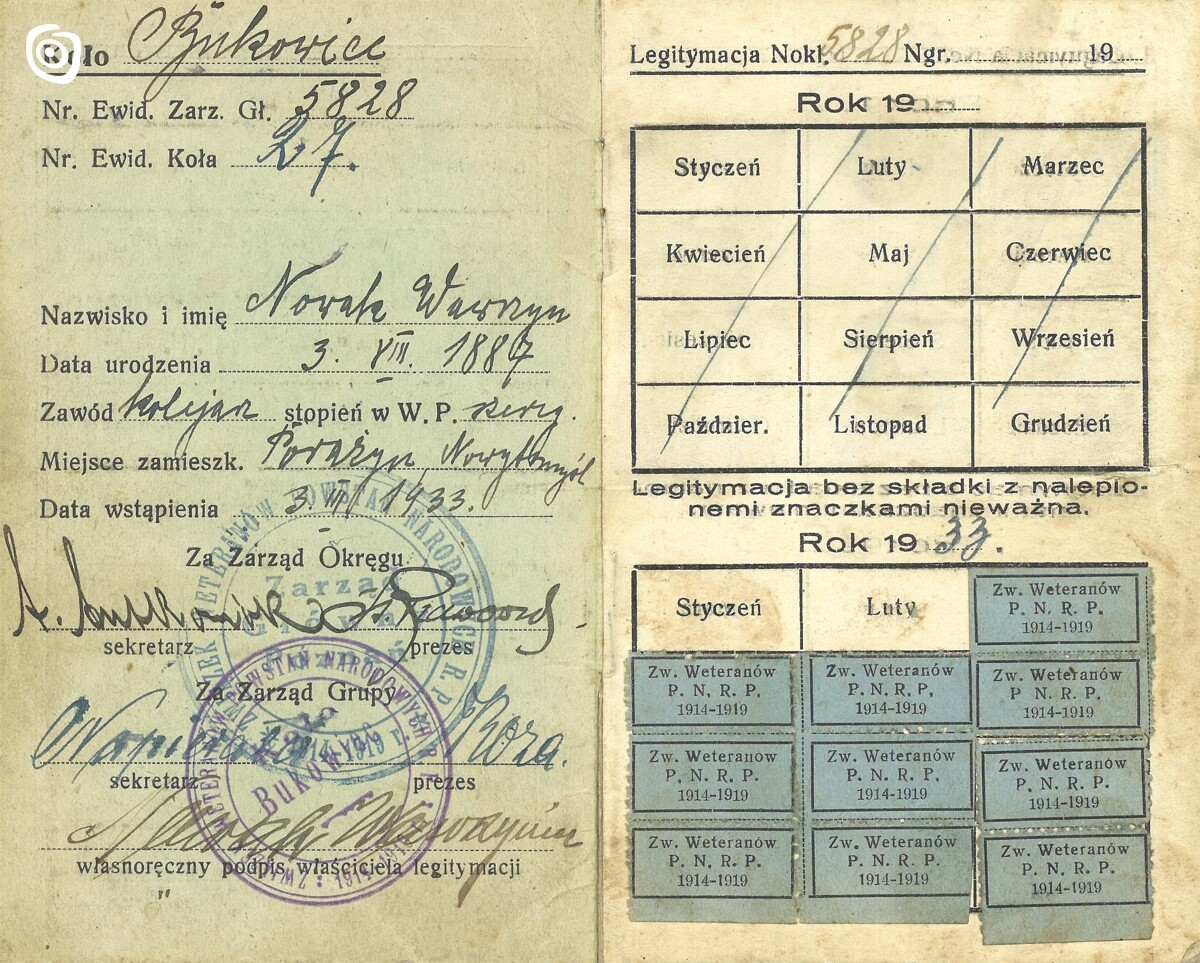 Koło Bukowice
Nr. Ewid. Zarz. Gł. 5828
Nr. Ewid. Koła 27.
Nazwisko i imię Nowak Wawrzyn
Data urodzenia 3. VIII. 1887
Zawód kolejarz stopień w W. P. szereg.
Miejsce zamieszk. Porażyn, Nowytomyśl
Data wstąpienia 3. III 1933.
Za Zarząd Okręgu
sekretarz prezes
Za Zarząd Grupy
Koza.
sekretarz prezes
Nowak Wawrzyn
własnoręczny podpis właściciela legitymacji
"
ZWIĄZEK WETERANÓW POWSTAŃ NARODOWYCH R. P.
Zarząd
1914-1919
WETERANÓW POWSTAŃ NARODOWYCH R. P.
BUKOWIEC
Legitymacja Nokl. 5828 Ngr. 19
Rok 19
Styczeń Luty Marzec
Kwiecień Maj Czerwiec
Lipiec Sierpień Wrzesień
Paździer. Listopad Grudzień
Legitymacja bez składki z nalepio-
nemi znaczkami nieważna.
Rok 19 33.
Styczeń Luty
Zw. Weteranów
P. N. R. P.
1914-1919
Zw. Weteranów
P. N. R. P.
1914-1919
Zw. Weteranów
P. N. R. P.
1914-1919
Zw. Weteranów
P. N. R. P.
1914-1919
Zw. Weteranów
P. N. R. P.
1914-1919
Zw. Weteranów
P. N. R. P.
1914-1919
Zw. Weteranów
P. N. R. P.
1914-1919
Zw. Weteranów
P. N. R. P.
1914-1919
Zw. Weteranów
P. N. R. P.
1914-1919
Zw. Weteranów
P. N. R. P.
1914-1919